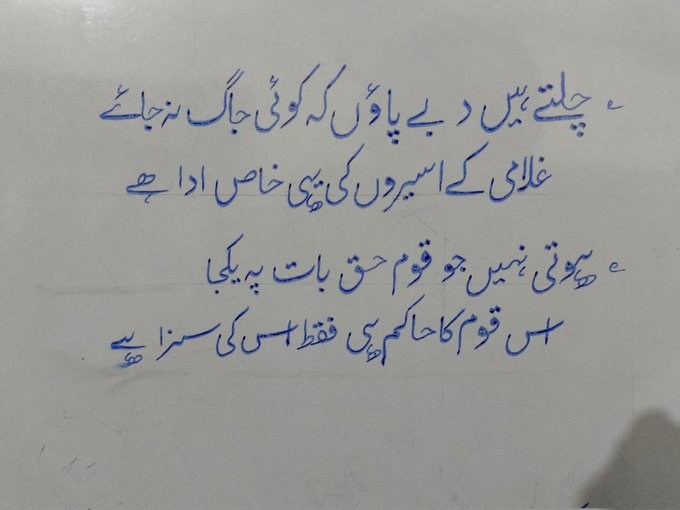 چلتے ہیں دبے پاؤں کہ کوئی جاگ نہ جائے
غلامی کے اسیروں کی یہی خاص ادا ھے
ہوتی نہیں جو قوم حق بات پہ یکجا
اس قوم کا حاکم ہی فقط اس کی سزا ہے